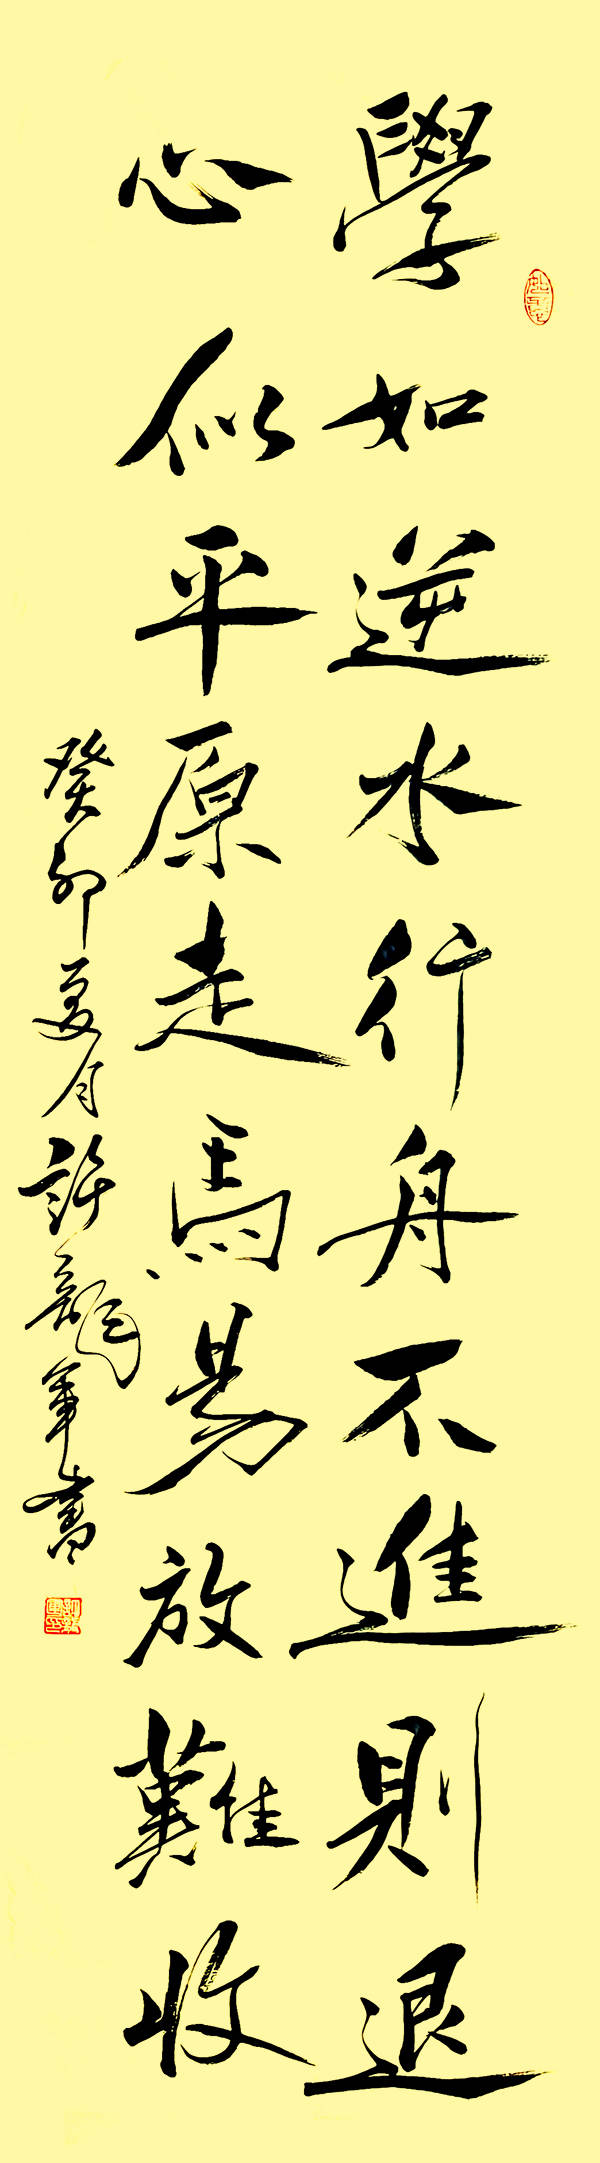 學如逆水行舟不進則退
心似平原走馬易放難收
癸卯夏月許龍軍書